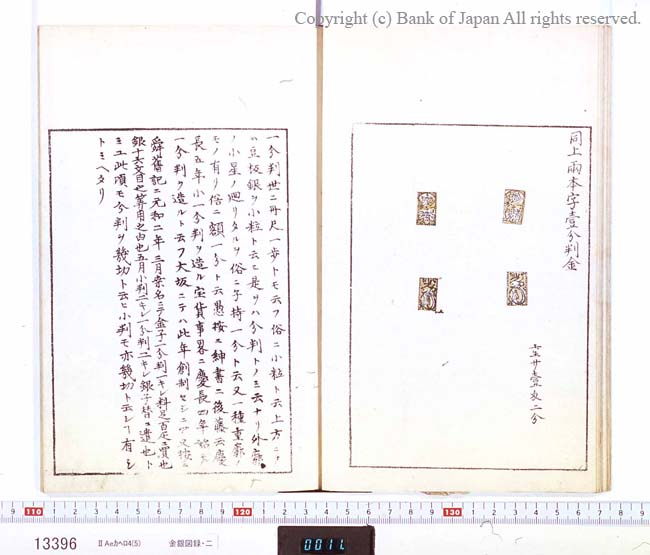 Copyright (c) Bank of Japan All rights reserved.
同上両本字壹分判金
一分判世ニ
一歩トモ云フ俗ニ小粒ト云上方ニテ
ハ豆坂銀ヲ小粒ト云ヒ是ヲハ分判トノミ云ナリ外廓
ノ小星ノ廻リタルヲ俗ニ子持一分ト云又一種重廓ノ
モノ有リ俗ニ額一分ト云愚按ニ紳書ニ後藤云慶
長五年小一分判ヲ造ル宝貨事畧ニ慶長四年始テ
一分判ヲ造ルト云フ大坂ニテハ此年創制セシニヤ又按ニ
舜舊記ニ元和二年三月桑名ニテ金子一分判一キレ料足百疋ニ買也
五月小判一キレ一分判二キレ銀子替ニ遣也ト
ミユ此頃モ分判ヲ幾切ト云ヒ小判モ亦幾切ト云シ有シ
トミヘタリ
110
120
130
13396
II Aeカヘロ4(5)
金銀図録・二
001L